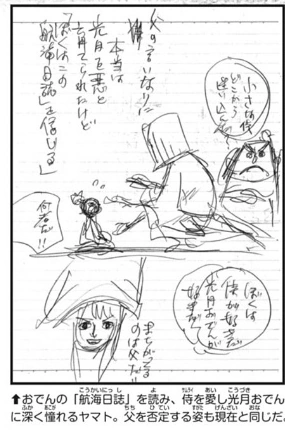 父の言いなりに
本当は
光月を悪と
育てられたけど
「ぼくはこの
航海日誌」を信じる」
小さな侍
どこから
迷い込んだ
何者だ!!
ぼくは
侍が好きだ
光月おでんが
好きだ
まちがってる
のは父だ!!
⬆おでんの「航海日誌」を読み、侍を愛し光月おでん
に深く憧れるヤマト。父を否定する姿も現在と同じだ。